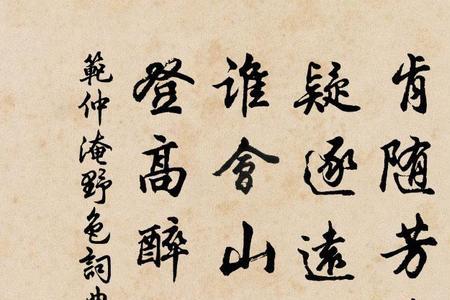 肯随芳
疑逐遠
誰會山
登高醉
範仲淹野色詞